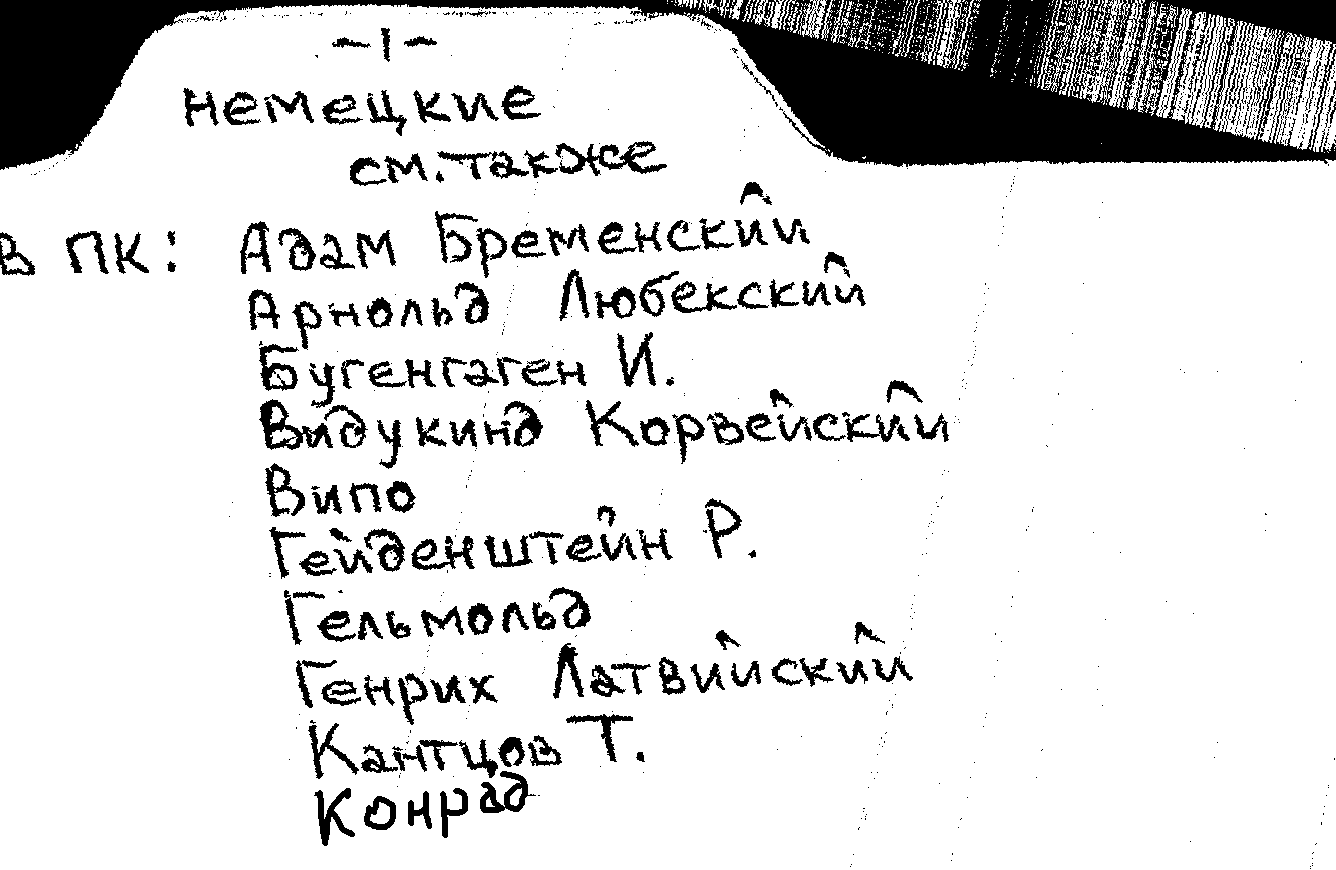 -1-
немецкие
см. также
В ПК: Адам Бременский
Арнольд Любекский
Бугенгаген И.
Видукинд Корвейский
Випо
Гейденштейн Р.
Гельмольд
Генрих Латвийский
Кантцов Т.
Конрад